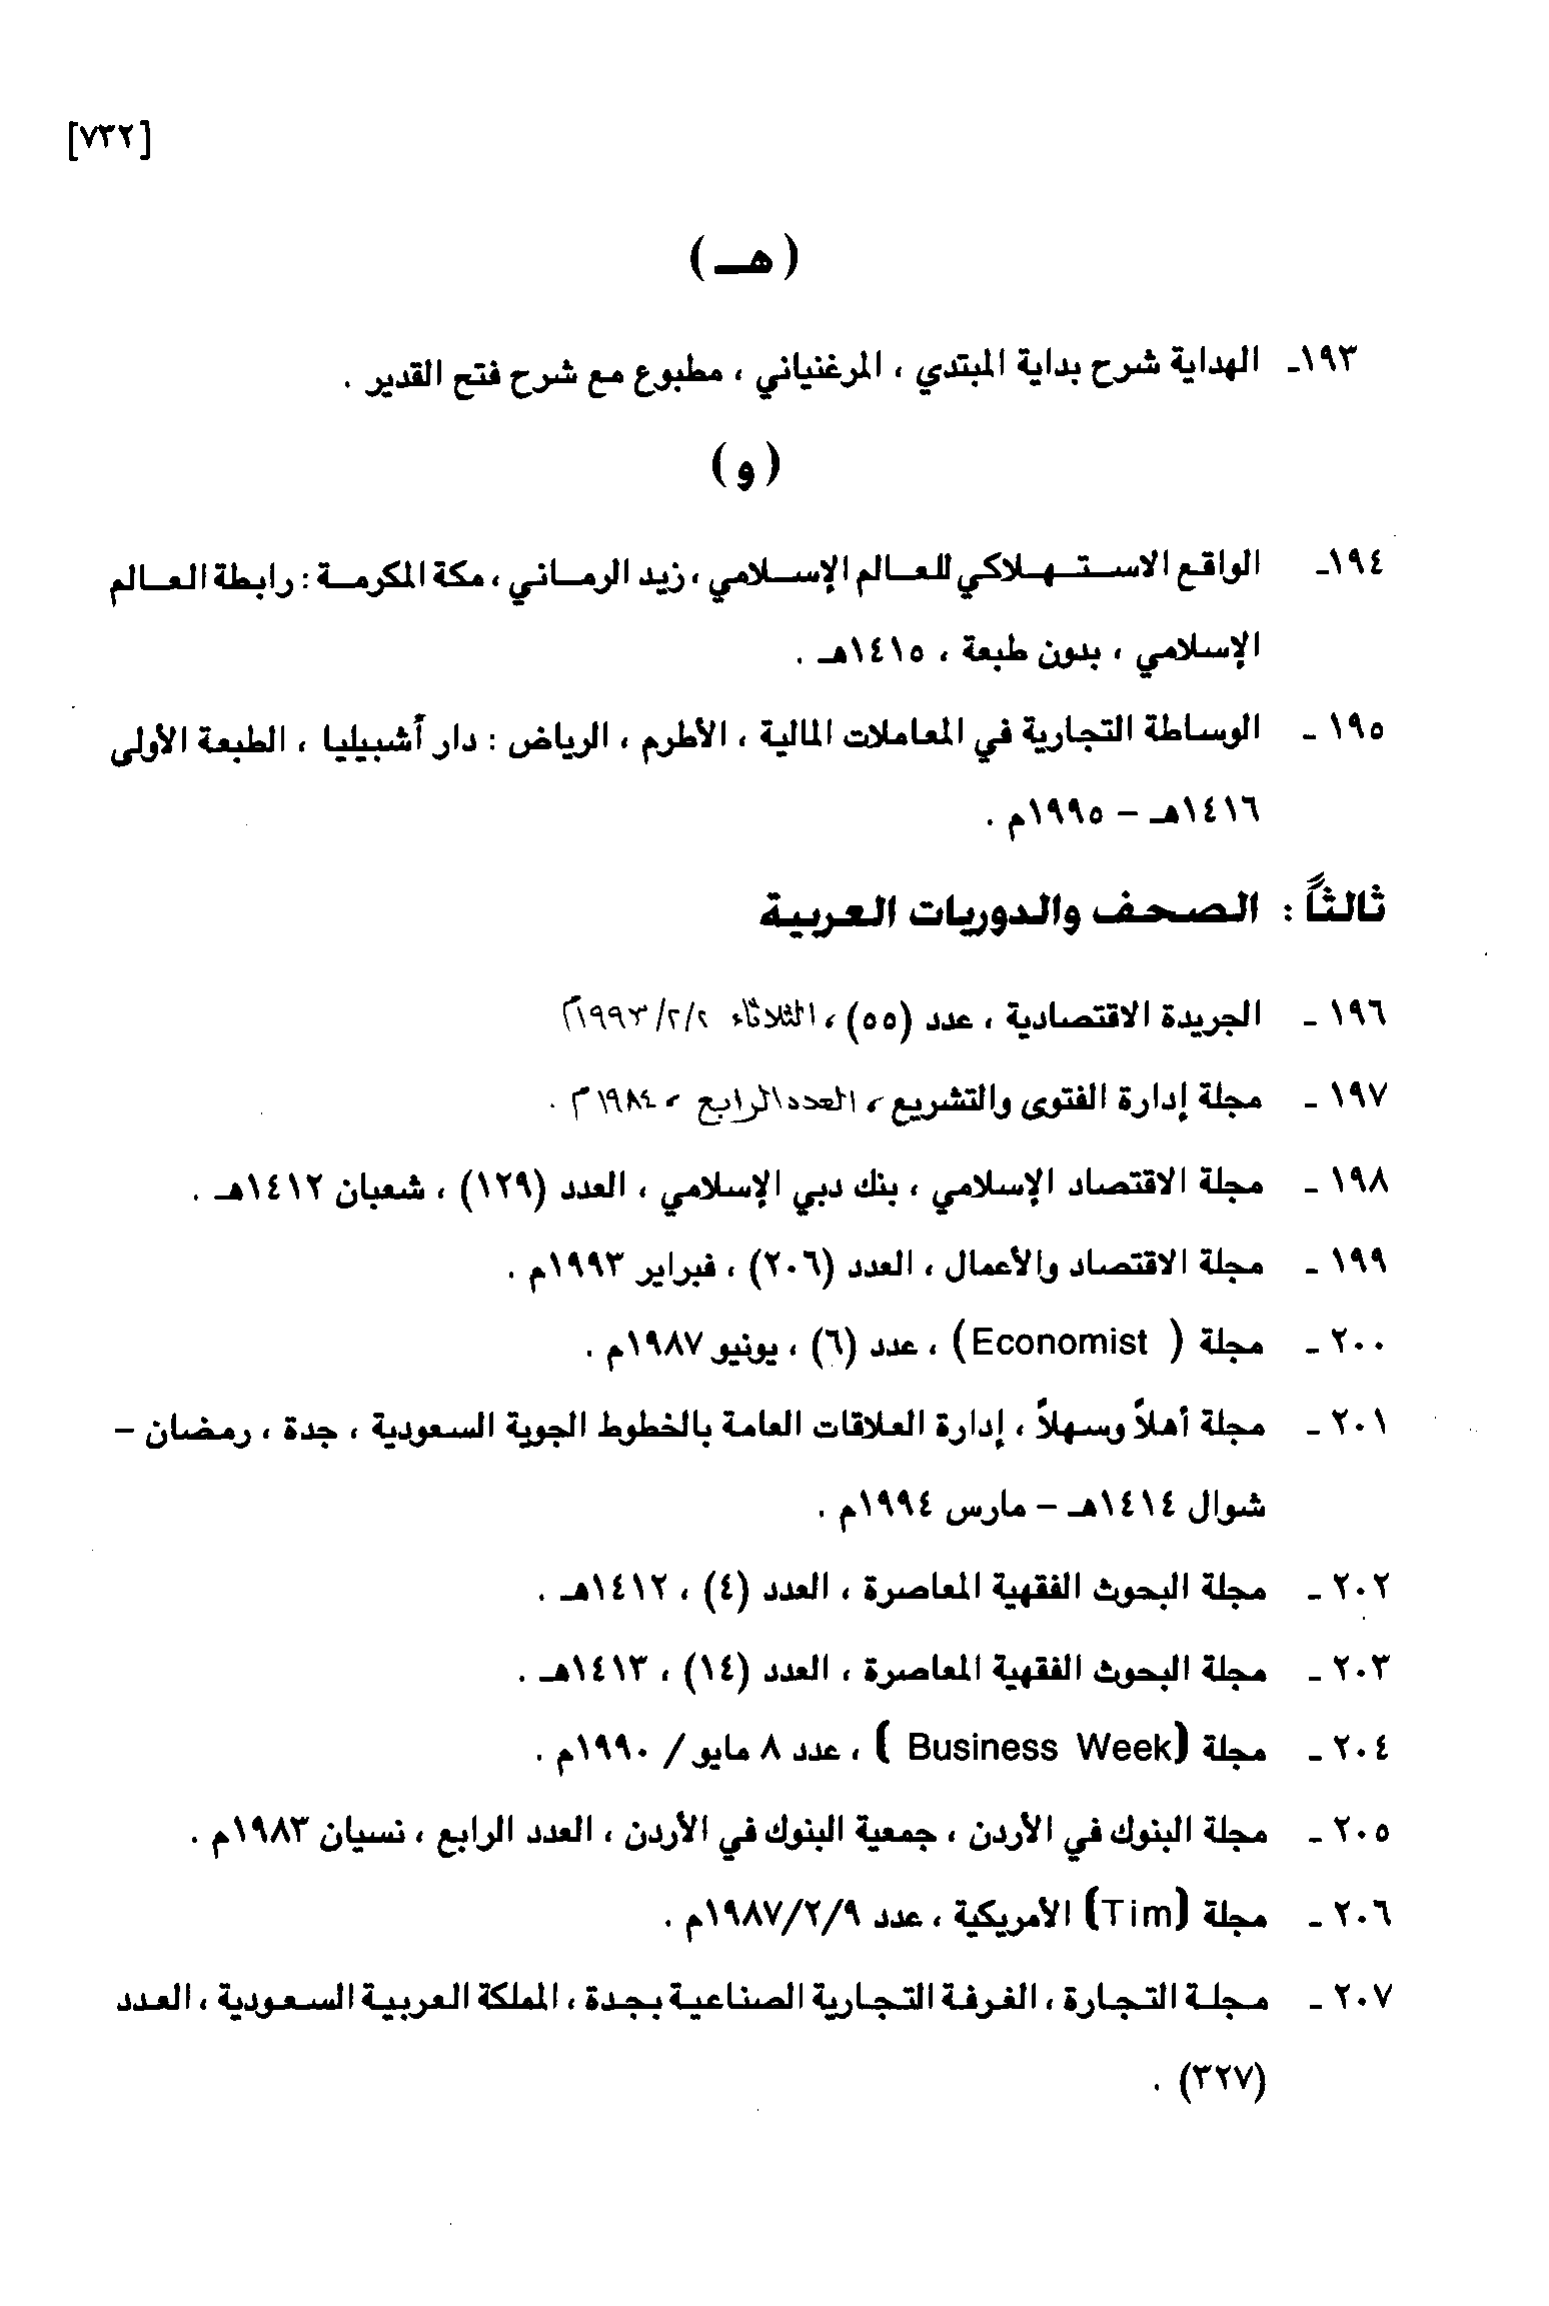 [٧٣٢]
(هـ)
١٩٣ـ الهداية شرح بداية المبتدي ، المرغنياني ، مطبوع مع شرح فتح القدير .
(و)
١٩٤ـ الواقع الاستهلاكي للعالم الإسلامي ، زيد الرماني ، مكة المكرمة : رابطة العالم
الإسلامي ، بدون طبعة ، ١٤١٥هـ .
١٩٥ ـ الوساطة التجارية في المعاملات المالية ، الأطرم ، الرياض : دار أشبيليا ، الطبعة الأولى
١٤١٦هـ – ١٩٩٥م .
ثالثاً : الصحف والدوريات العربية
١٩٦ ـ الجريدة الاقتصادية ، عدد (٥٥) ، الثلاثاء ٢/٢/١٩٩٣م
١٩٧ ـ مجلة إدارة الفتوى والتشريع ، العدد الرابع ، ١٩٨٤م .
١٩٨ ـ مجلة الاقتصاد الإسلامي ، بنك دبي الإسلامي ، العدد (١٢٩) ، شعبان ١٤١٢هـ .
١٩٩ ـ مجلة الاقتصاد والأعمال ، العدد (٢٠٦) ، فبراير ١٩٩٣م .
٢٠٠ ـ مجلة ( Economist) ، عدد (٦) ، يونيو ١٩٨٧م .
٢٠١ ـ مجلة أهلاً وسهلاً ، إدارة العلاقات العامة بالخطوط الجوية السعودية ، جدة ، رمضان –
شوال ١٤١٤هـ – مارس ١٩٩٤م .
٢٠٢ ـ مجلة البحوث الفقهية المعاصرة ، العدد (٤) ، ١٤١٢هـ .
٢٠٣ ـ مجلة البحوث الفقهية المعاصرة ، العدد (١٤) ، ١٤١٣هـ .
٢٠٤ ـ مجلة (Business Week ) ، عدد ٨ مايو / ١٩٩٠م .
٢٠٥ ـ مجلة البنوك في الأردن ، جمعية البنوك في الأردن ، العدد الرابع ، نسيان ١٩٨٣م .
٢٠٦ ـ مجلة (Tim) الأمريكية ، عدد ١٩٨٧/٢/٩م .
٢٠٧ ـ مجلة التجارة ، الغرفة التجارية الصناعية بجدة ، المملكة العربية السعودية ، العدد
(٣٢٧) .